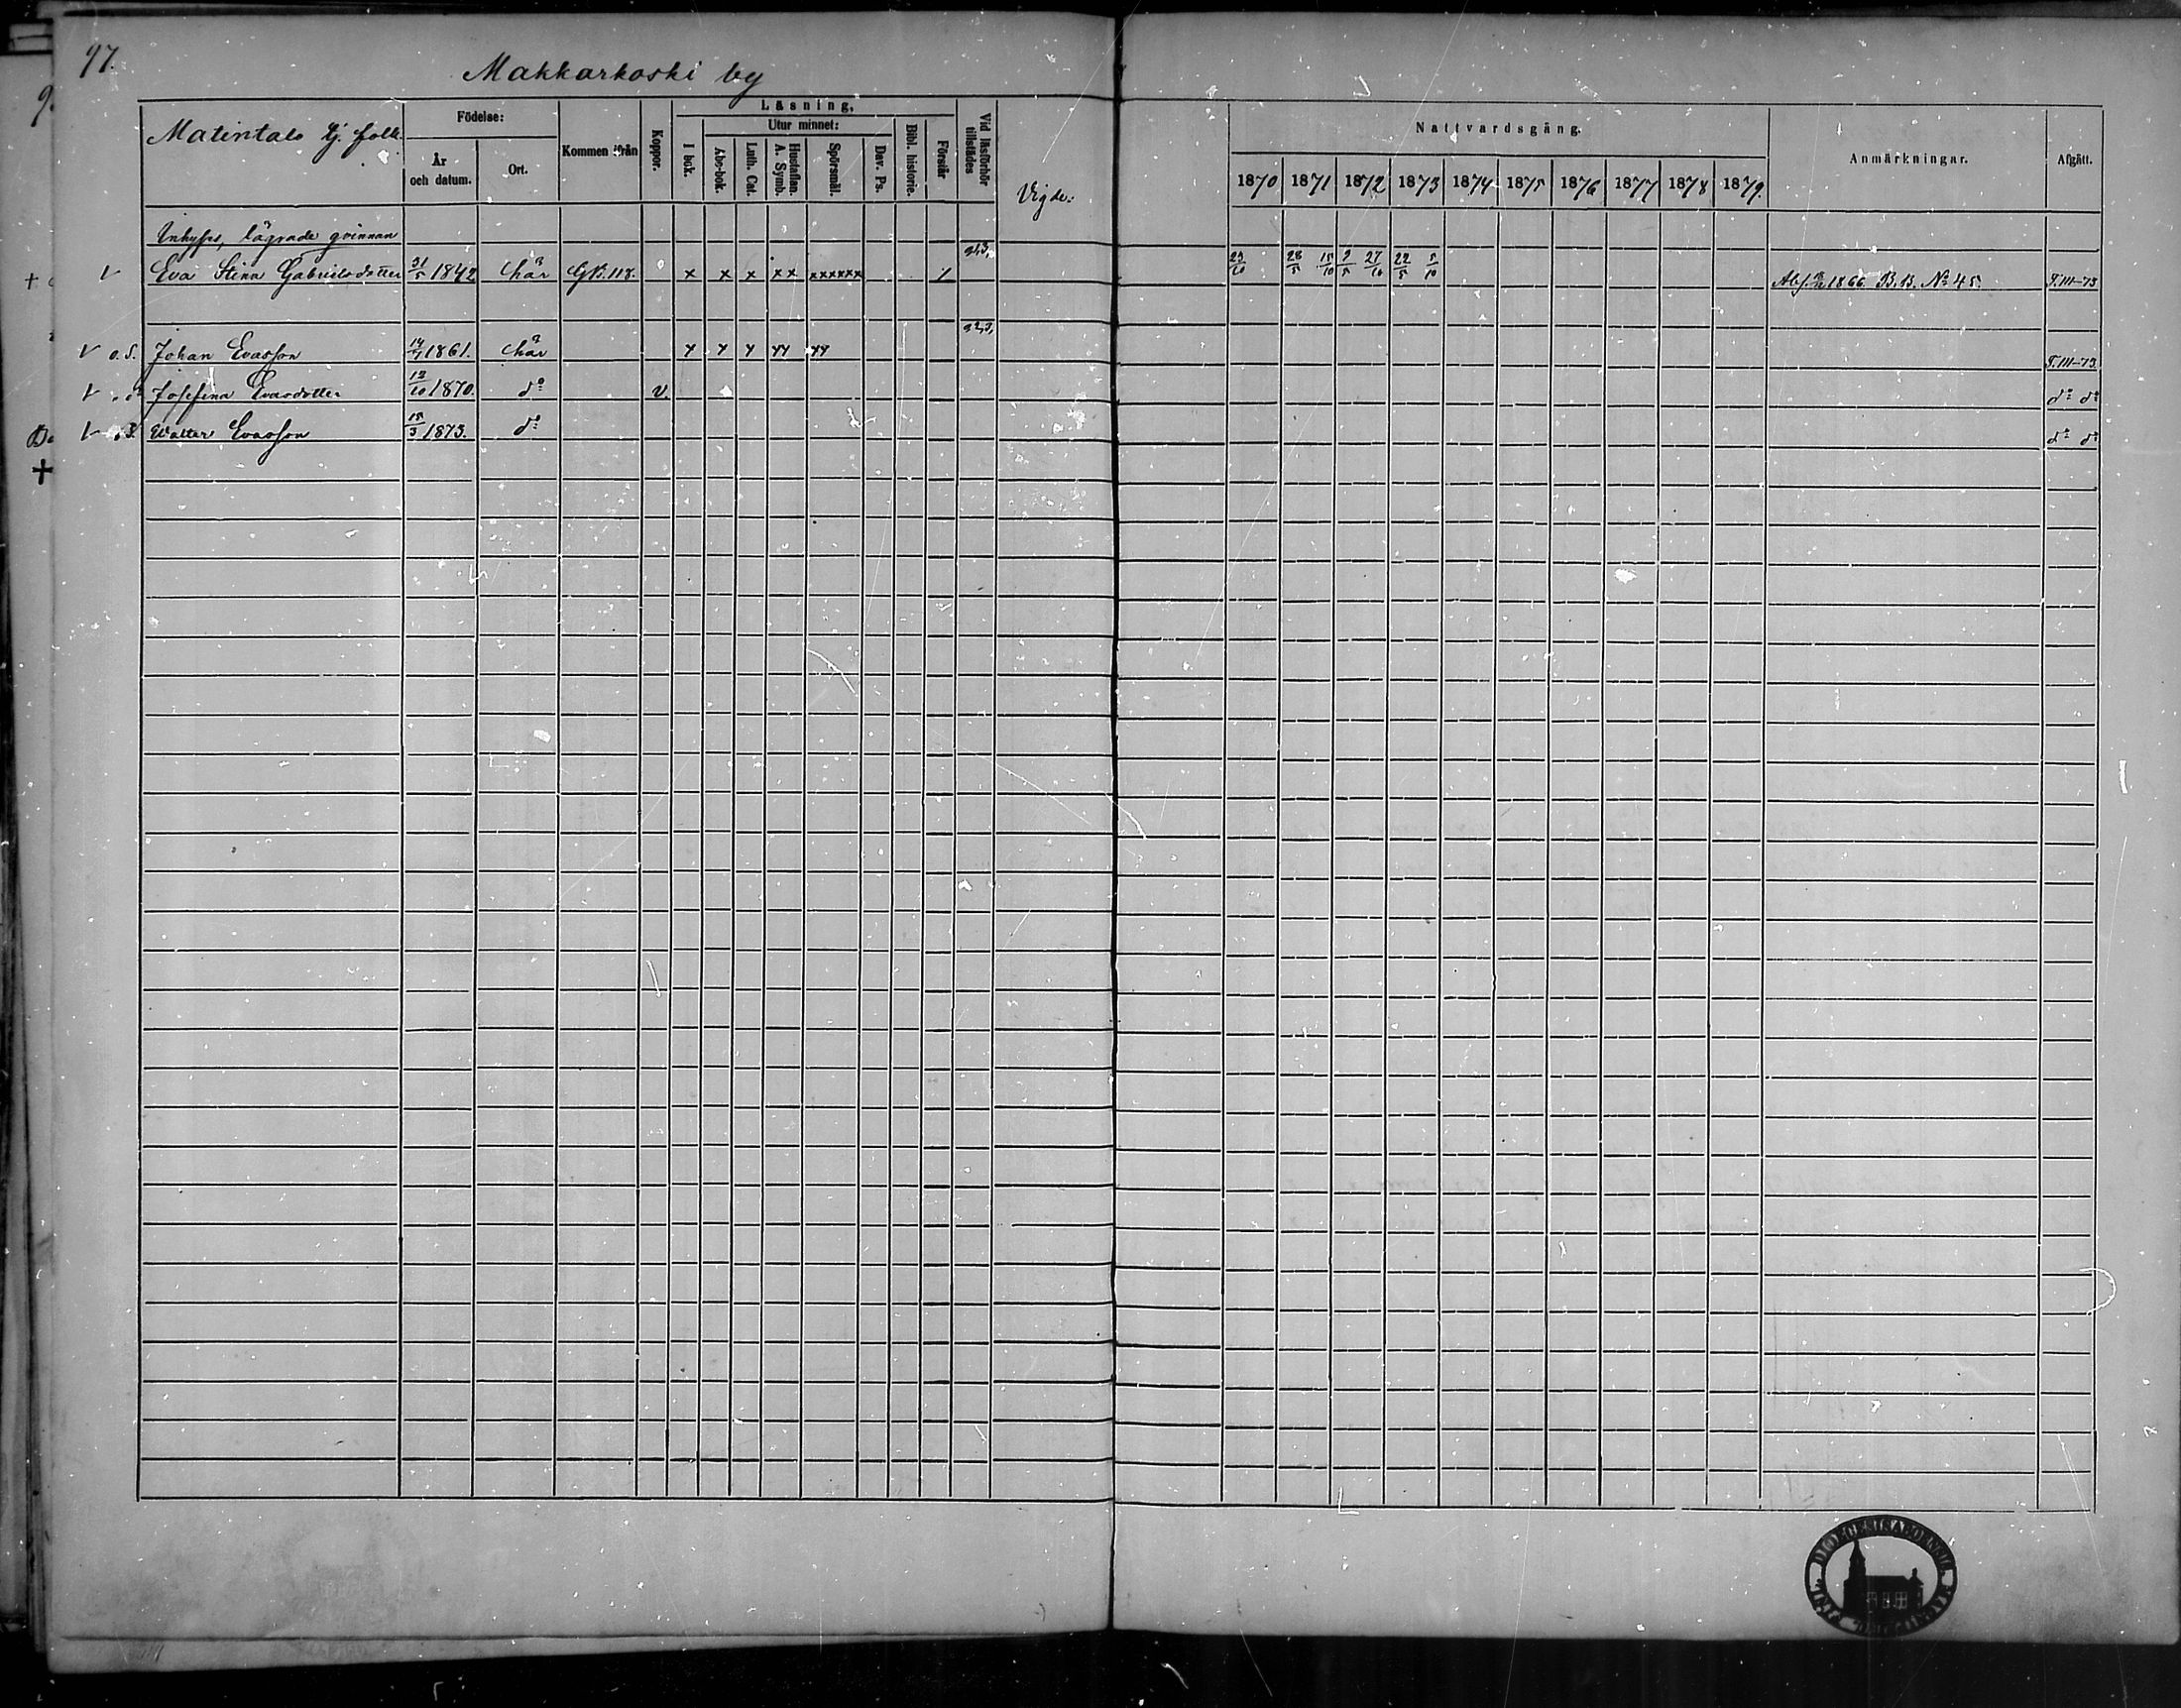 97.
Makkarkoski by
Matintalo tj. folk.
Födelse:
År och datum.
Ort.
Kommen ifrån
Koppor.
Läsning.
I bok.
Utur minnet:
Abc-bok.
Luth. Cat.
Hustaflan. A. Symb.
Spörsmål.
Dav. Ps.
Bibl. historie.
Förstår
Vid läsförhör tillstädes
Vigde:
Nattvardsgång.
1870 1871 1872 1873 1874 1875 1876 1877 1878 1879.
Anmärkningar.
Afgått.
Inhyses, lägrade qvinnan
V Eva Stina Gabrielsdotter 31/5 1842 här GB. 118. x x x xx xxxxxx 23/10 28/5 15/10 27/10 22/5 5/10 1866 B.B. No 45. T.III-73
V o.S. Johan Evasson 14/1 1861. här T.III-73
V Josefina Evasdotter 12/10 1870. do V. do do
V Walter Evasson 15/3 1873. do do do